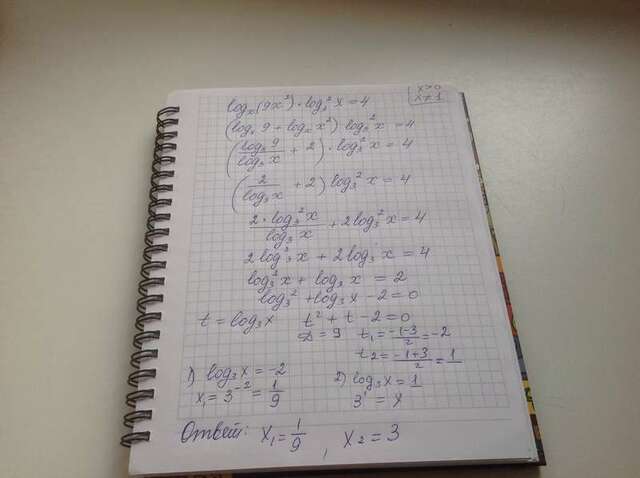 logₓ(9x²)·log₃²x=4
x>0
x≠1
(logₓ9+logₓx²)log₃²x=4
(log₃9/log₃x+2)·log₃²x=4
(2/log₃x+2)log₃²x=4
2·log₃²x/log₃x+2log₃²x=4
2log₃²x+2log₃x=4
log₃²x+log₃x=2
log₃²+log₃x-2=0
t=log₃x t²+t-2=0
D=9 t₁=(-1-3)/2=-2
t₂=(-1+3)/2=1
1) log₃x=-2 2) log₃x=1
x₁=3⁻²=1/9 3¹=x
Ответ: x₁=1/9, x₂=3